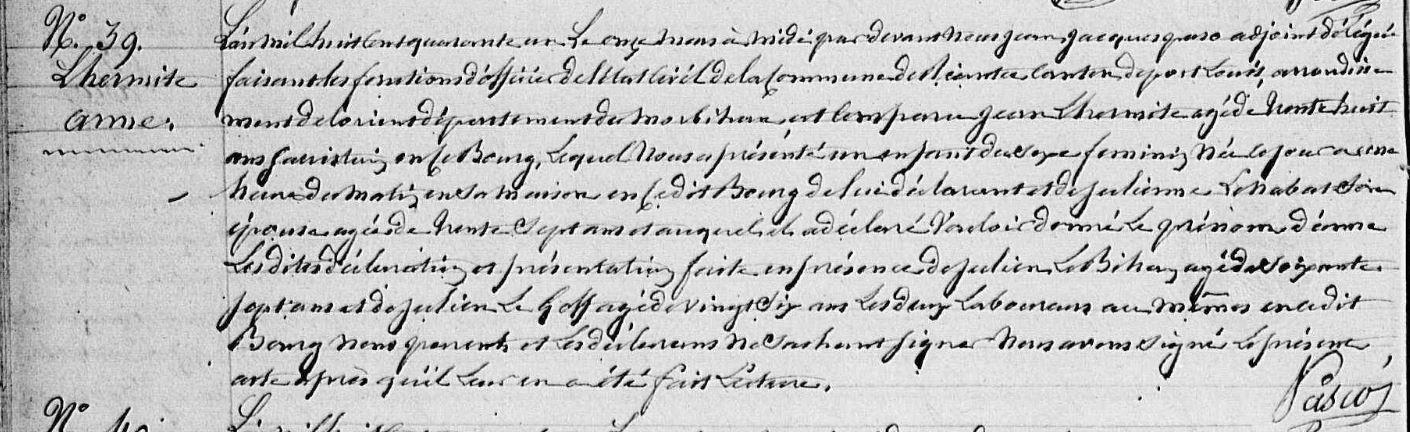 N° 39.
Lhermite
anne.
L'an mil huit cent quarante un Le onze mars à midi par devant nous jean jacques pasco adjoint délégué
faisant les fonctions d'officier de l'état civil de la Commune de canton de port Louis, arrondisse
ment de lorient département du morbihan, est comparu jean Lhermite agé de trente huit
ans en ce Bourg, Lequel Nous a présenté un enfant du sexe feminin Né ce jour a une
heure du matin en sa maison en ce dit Bourg de lui déclarant et de julienne Le son
épouse agée de trente sept ans et auquel il a déclaré Vouloir donné Le prénom d'anne
Lesdites déclaration et présentation faite en présence de julien Le Bihan agé de soixante
sept ans et de julien Le Goff agé de vingt six ans Les deux Laboureurs au en cedit
Bourg Nons parents et Les déclarans Ne sachant signer Nous avons signé Le présent
acte après qu'il Leur en a été fait Lecture.
Pasco
N°